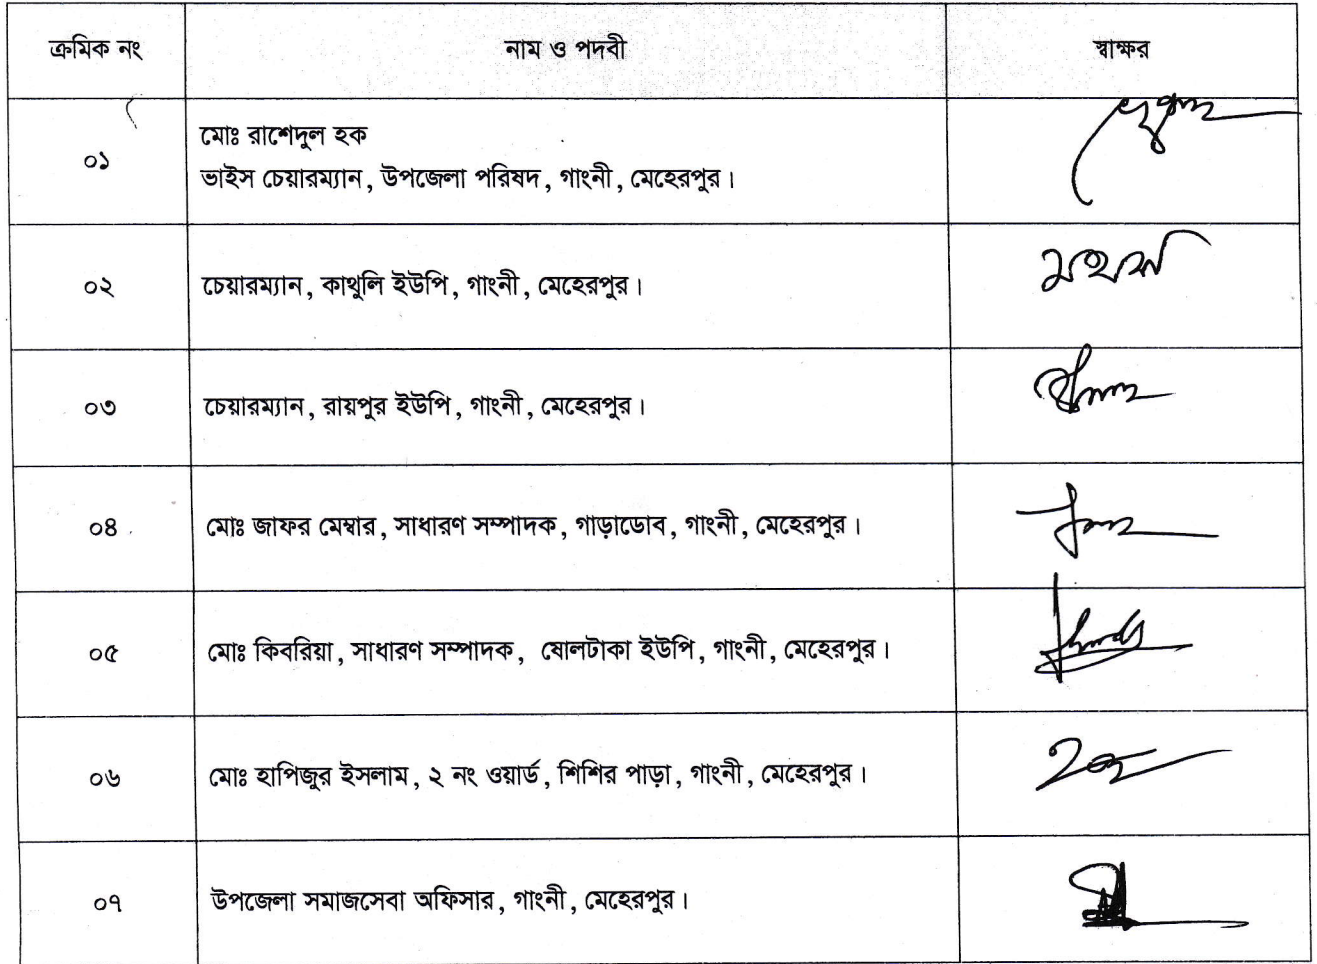 ক্রমিক নং নাম ও পদবী স্বাক্ষর
০১ মোঃ রাশেদুল হক
ভাইস চেয়ারম্যান, উপজেলা পরিষদ, গাংনী, মেহেরপুর।
০২ চেয়ারম্যান, কাথুলি ইউপি, গাংনী, মেহেরপুর।
০৩ চেয়ারম্যান, রায়পুর ইউপি, গাংনী, মেহেরপুর।
০৪ মোঃ জাফর মেম্বার, সাধারণ সম্পাদক, গাড়াডোব, গাংনী, মেহেরপুর।
০৫ মোঃ কিবরিয়া, সাধারণ সম্পাদক, ষোলটাকা ইউপি, গাংনী, মেহেরপুর।
০৬ মোঃ হাপিজুর ইসলাম, ২ নং ওয়ার্ড, শিশির পাড়া, গাংনী, মেহেরপুর।
০৭ উপজেলা সমাজসেবা অফিসার, গাংনী, মেহেরপুর।